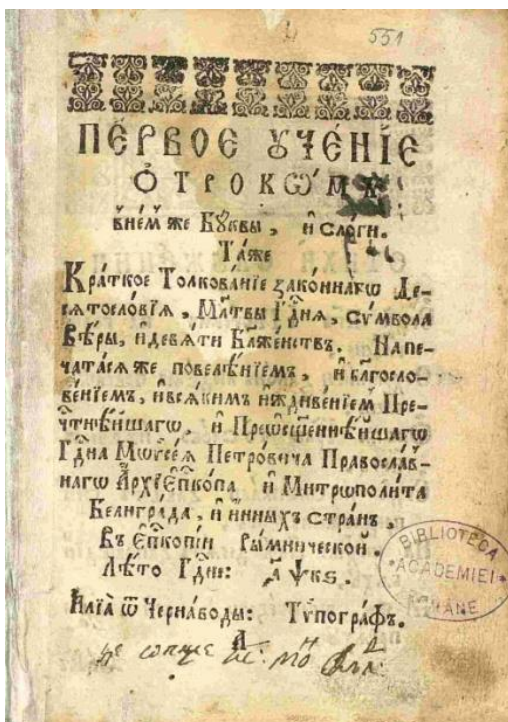 551
ПЕ́РВОЕ ᲂУЧЕ́НЇЕ
Ѻ҆ТРОКѠ́МЪ
в̾не́мже Бꙋ́квы , и҆ сло́ги.
Та́же
Кра́ткое Толкова́нїе зако́ннагѡ Де-
сѧтосло́вїѧ , Мл҃твы Гд҇нѧ , сѵ́мвола
Вѣ́ры , и҆девѧти Бл҃же́нствъ. Напе-
ча́тасѧже повелѣ́нїемъ , и҆ бл҃госло-
ве́нїемъ , и҆всѧ́кимъ и҆ждиве́нїемъ Пре-
чⷭ҇тнѣ́йшагѡ , и҆ Преѡсщ҃е́ннѣйшагѡ
Гдⷭ҇на Мѡѷсе́а Петро́вича Правосла́в-
нагѡ А҆рхїЕпⷭ҇копа и҆ Митрополи́та
Белигра́да , и҆ и҆нныхъ стра́нъ ,
Въ Епⷭ҇копїи Ры́мнической .
Лѣ́то Гдⷭ҇не: ҂а ѱкѕ .
Илїа̀ ѿ Черна́воды: Тѷпогра́фъ.
А
BIBLIOTECA
*ACADEMIEI*